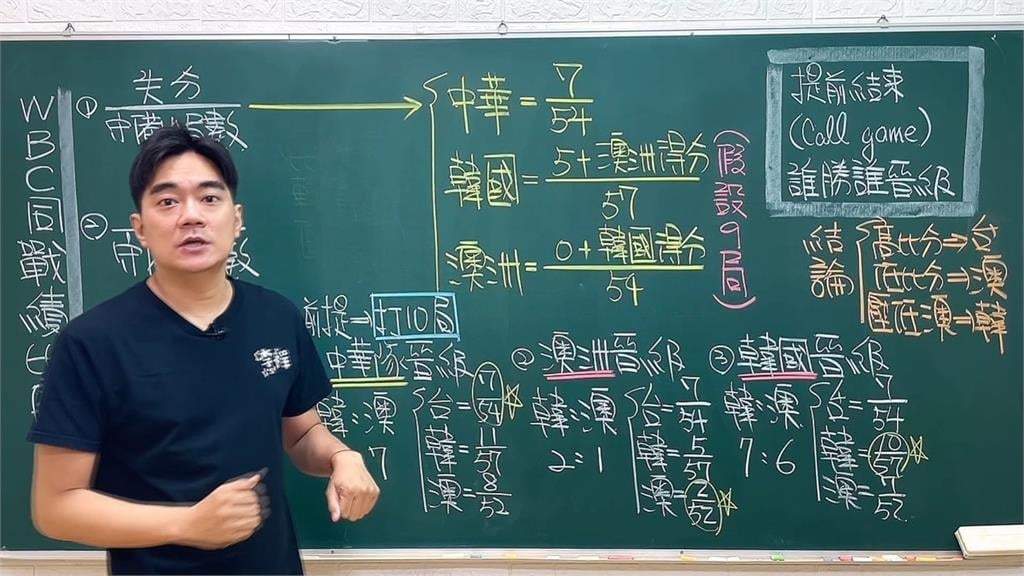 WBC同戰績
① 失分
②
中華 = 7/54
韓國 = 5+澳洲得分/57
澳洲 = 0+韓國得分/54
(假設9局)
提前結束
(Call game)
誰勝誰晉級
結論
高比分⇒台
低比分⇒澳
澳⇒韓
前提→打10局
中華 晉級
韓:澳
7
台=7/54
韓=11/57
澳=8/52
② 澳洲晉級
韓:澳
2:1
台=7/54
韓=5/57
澳=2/52
③ 韓國晉級
韓:澳
7:6
台=7/54
韓=10/57
澳=7/52